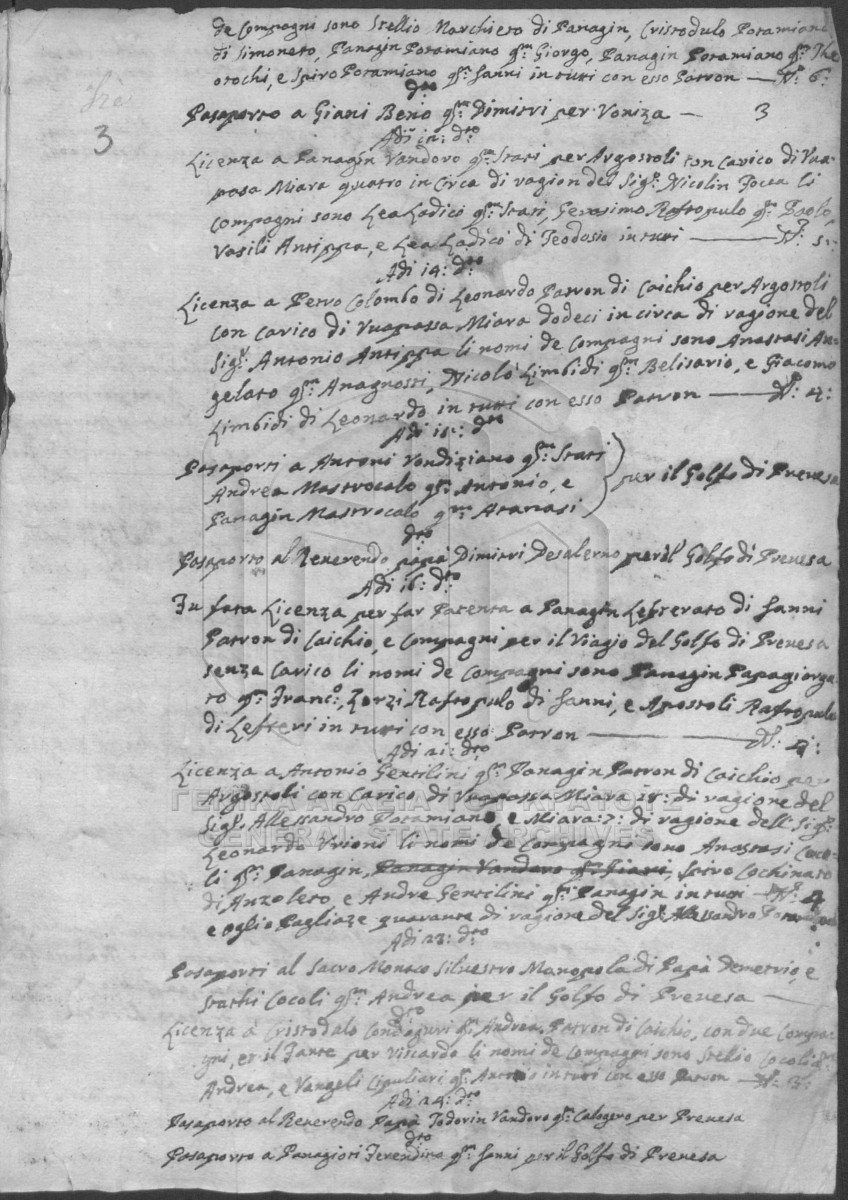 de Compagni sono Stellio Marchieto di Panagin, Cristodulo Potamiano
di Simoneto, Panagin Potamiano qm Giorgo, Panagin Potamiano qm The
otochi, e Spiro Potamiano qm Janni in tuti con esso Patron — No: 6:
dto
Pasaporto a Giani Beno qm Dimitri per Voniza — 3
3
Adi dto
Licenza a Panagin Vandoro qm Stati per Argostoli con Carico di Vua
pasa Miara quatro in Circa di ragion del Sigr Nicolin li
Compagni sono Lea Ladicò qm Stati, Gerosimo Rafropulo qm Paolo
Vasili Antippa, e Lea Ladicò di Teodosio in tuti — No: 5:
Adi 14: dto
Licenza a Petro Colombo di Leonardo Patron di Caichio per Argostoli
Con Carico di Vuapassa Miara dodeci in circa di ragione del
Sigr: Antonio Antippa li nomi de Compagni sono Anastasi An
gelato qm Anagnosti, Nicolò Limbidi qm Belisario, e Giacomo
Limbidi di Leonardo in tutti con esso Patron — No: 4:
Adi 15: dto
Pasaporti a Antoni Vondiziano qm: Stati
Andrea Mastrocalo qm: Antonio, e
Panagin Mastrocalo qm Atanasi
per il Golfo di Prevesa
dto
Pasaporto al Reverendo papà Dimitri Desalerno per il Golfo di Prevesa
Adi 16: dto
Fu fata Licenza per far Patenta a Panagin Lefterato di Janni
Patron di Caichio, e Compagni per il Viagio del Golfo di Prevesa
senza Carico li nomi de Compagni sono Panagin Papagiorga
to qm Franco:, Zorzi Rafropulo di Janni, e Apostoli Rafropulo
di Lefteri in tutti con esso Patron — No: 4:
Adi 21: dto
Licenza a Antonio Gentilini qm Panagin Patron di Caichio per
Argostoli con Carico di Vuapassa Miara 18: di ragione del
Sigr Allessandro Potamiano, e Miara: 7: di ragione dell Sigr
Leonardo Vrioni li nomi de Compagni sono Anastasi Coco
li qm Panagin, Panagin Vandoro qm Stati, Spiro Cochinato
di Anzoleto, e Andre Gentilini qm Panagin in tuti — No: 4
e oglio Pagliaze quarante di ragione del Sigr Alessandro Potamiano
Adi 23: dto
Pasaporti al Sacro Monaco Silvestro Manopola di Papà Demetrio, e
Stathi Cocoli qm Andrea per il Golfo di Prevesa
dto
Licenza à Cristodalo Condoguri qm Andrea Patron di Caichio, con due Compa
gni, et il Fante per Vitcardo li nomi de Compagni sono Stelio Cocoli qm
Andrea, e Vangeli Cipuliari qm in tuti con esso Patron — No: 3:
Adi 24: dto
Pasaporto al Reverendo Papà Todorin Vandoro qm Calogero per Prevesa
dto
Pasaporto a Panagioti Ferendina qm Janni per il Golfo di Prevesa
ΓΕΝΙΚΑ ΑΡΧΕΙΑ ΤΟΥ ΚΡΑΤΟΥΣ
GENERAL STATE ARCHIVES